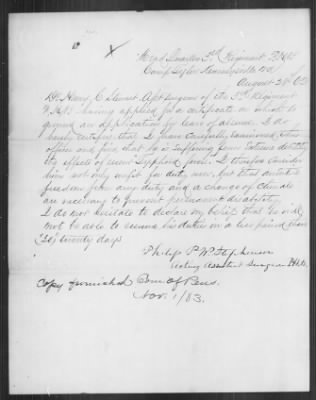 Head Quarters 3rd Regiment
Camp Kennerysville Va
August 2nd
Dr Henry C Stewart Asst Surgeon of the 3rd Regiment
having applied for a certificate on which to
ground an application for leave of absence. I do
hereby certify that I have carefully examined this
officer and find that he is suffering from Extreme debility
the effects of recent Typhoid fever. I therefore consider
him not only unfit for duty now, but that entire
freedom from any duty and a change of climate
are necessary to prevent permanent disability.
I do not hesitate to declare my belief that he will
not be able to resume his duties in a less period than
twenty days
Philip P. W. Stephenson
Acting Assistant Surgeon
Copy furnished Com of Pens.
Nov. 1/83.